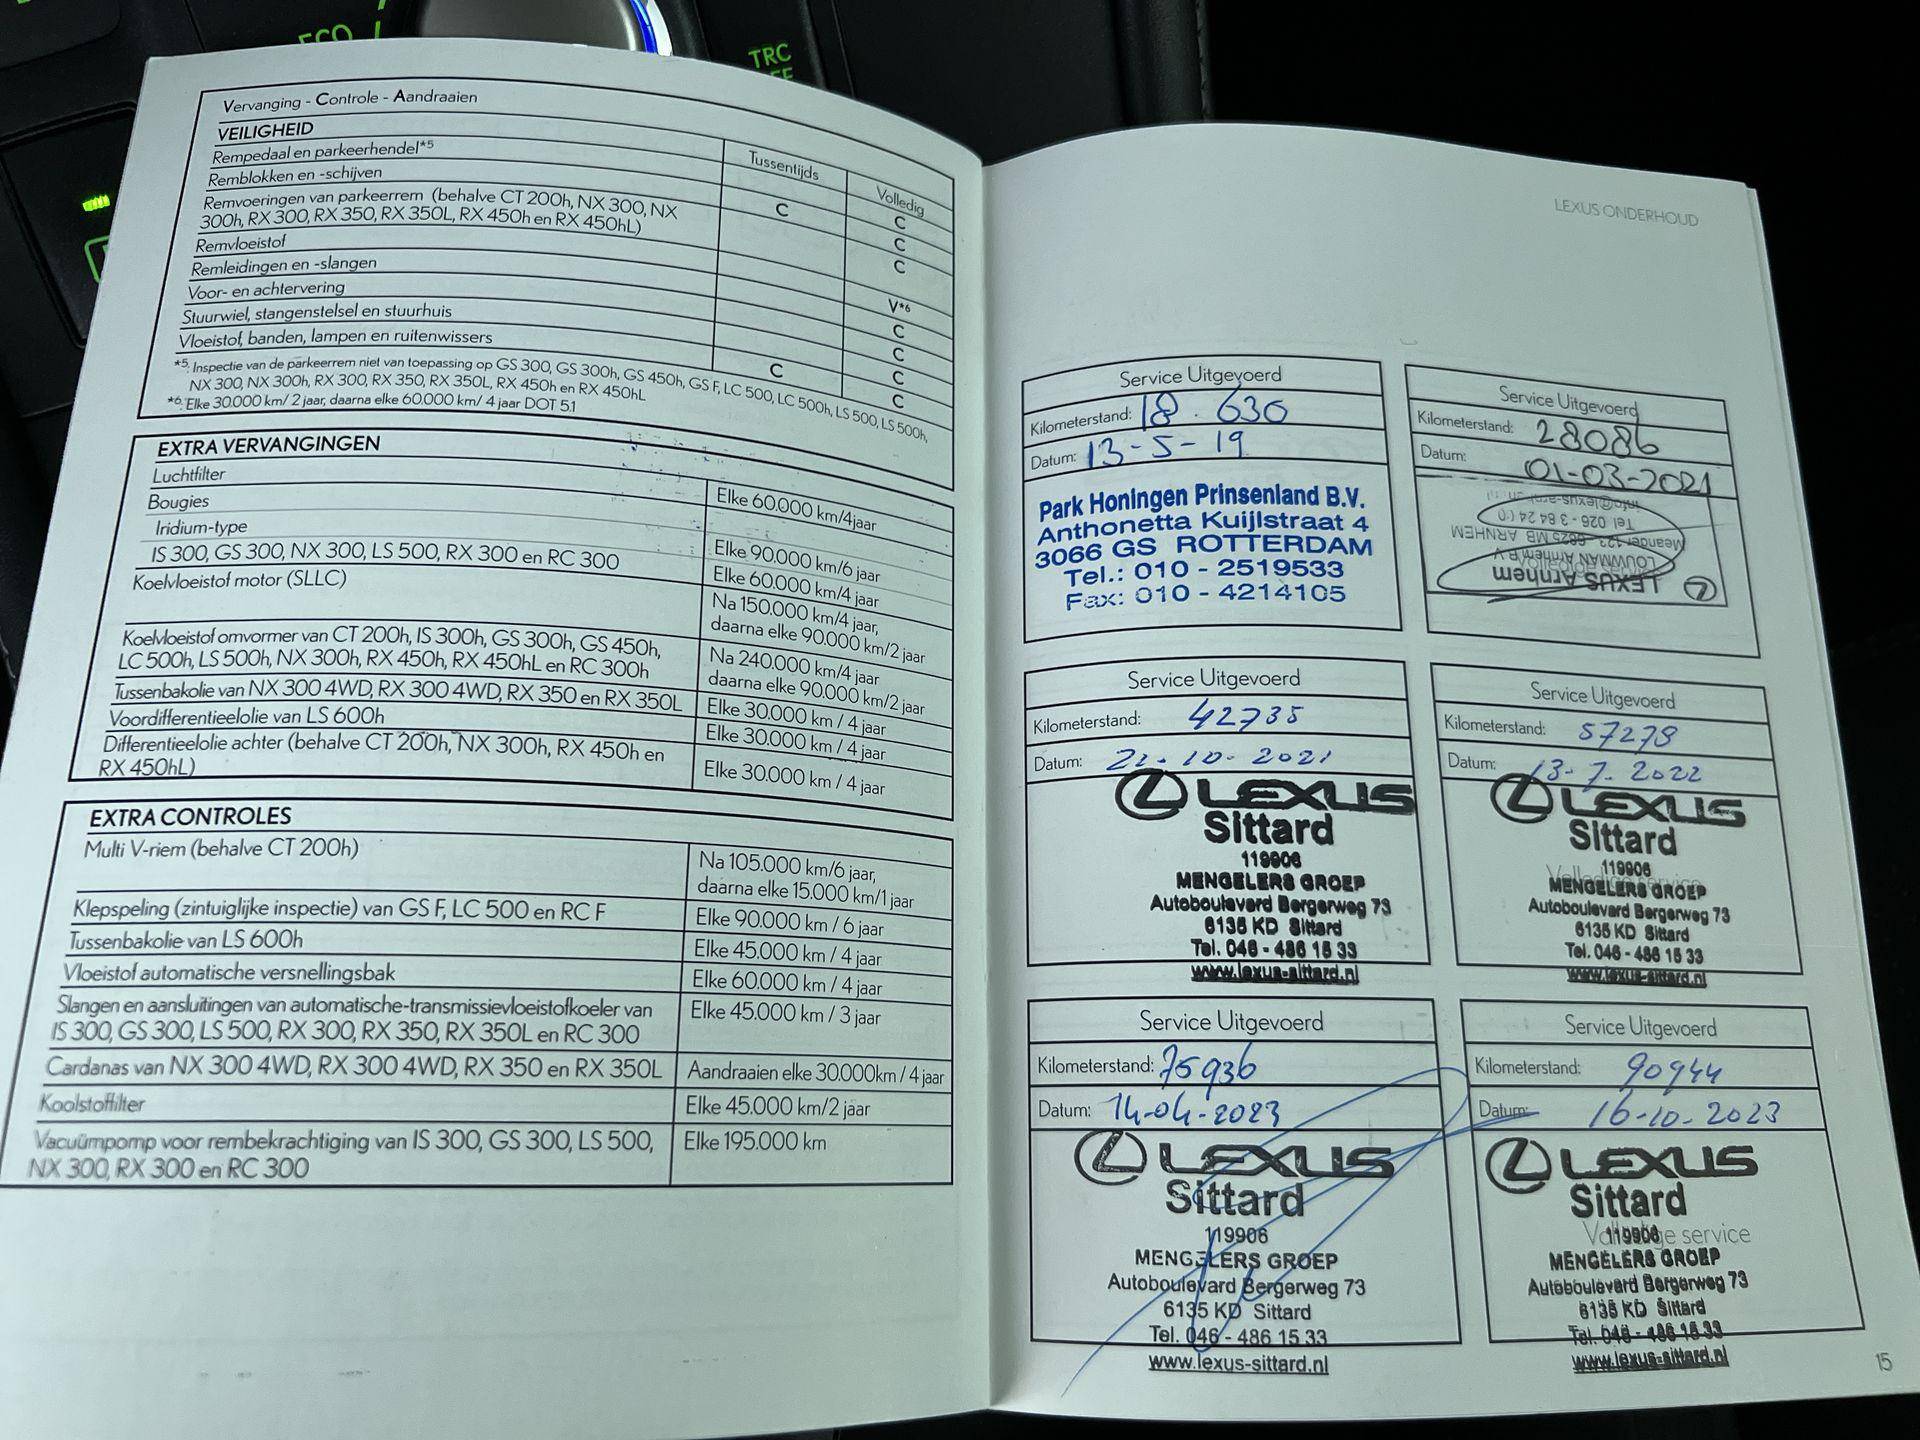 ECO
TRC
Vervanging - Controle - Aandraaien
VEILIGHEID
Tussentijds
Volledig
Rempedaal en parkeerhendel*5
C
C
Remblokken en -schijven
C
Remvoeringen van parkeerrem (behalve CT 200h, NX 300, NX
300h, RX 300, RX 350, RX 350L, RX 450h en RX 450hL)
C
Remvloeistof
V*6
Remleidingen en -slangen
C
Voor- en achtervering
C
Stuurwiel, stangenstelsel en stuurhuis
C
Vloeistof, banden, lampen en ruitenwissers
C
C
*5: Inspectie van de parkeerrem niet van toepassing op GS 300, GS 300h, GS 450h, GS F, LC 500, LC 500h, LS 500, LS 500h,
NX 300, NX 300h, RX 300, RX 350, RX 350L, RX 450h en RX 450hL
*6: Elke 30.000 km/ 2 jaar, daarna elke 60.000 km/ 4 jaar DOT 5.1
EXTRA VERVANGINGEN
Luchtfilter
Elke 60.000 km/4jaar
Bougies
Iridium-type
Elke 90.000 km/6 jaar
IS 300, GS 300, NX 300, LS 500, RX 300 en RC 300
Elke 60.000 km/4 jaar
Koelvloeistof motor (SLLC)
Na 150.000 km/4 jaar,
daarna elke 90.000 km/2 jaar
Koelvloeistof omvormer van CT 200h, IS 300h, GS 300h, GS 450h,
LC 500h, LS 500h, NX 300h, RX 450h, RX 450hL en RC 300h
Na 240.000 km/4 jaar
daarna elke 90.000 km/2 jaar
Tussenbakolie van NX 300 4WD, RX 300 4WD, RX 350 en RX 350L
Elke 30.000 km / 4 jaar
Voordifferentieelolie van LS 600h
Elke 30.000 km / 4 jaar
Differentieelolie achter (behalve CT 200h, NX 300h, RX 450h en
RX 450hL)
Elke 30.000 km / 4 jaar
EXTRA CONTROLES
Multi V-riem (behalve CT 200h)
Na 105.000 km/6 jaar,
daarna elke 15.000 km/1 jaar
Klepspeling (zintuiglijke inspectie) van GS F, LC 500 en RC F
Elke 90.000 km / 6 jaar
Tussenbakolie van LS 600h
Elke 45.000 km / 4 jaar
Vloeistof automatische versnellingsbak
Elke 60.000 km / 4 jaar
Slangen en aansluitingen van automatische-transmissievloeistofkoeler van
IS 300, GS 300, LS 500, RX 300, RX 350, RX 350L en RC 300
Elke 45.000 km / 3 jaar
Cardanas van NX 300 4WD, RX 300 4WD, RX 350 en RX 350L
Aandraaien elke 30.000km / 4 jaar
Koolstoffilter
Elke 45.000 km/2 jaar
Vacuümpomp voor rembekrachtiging van IS 300, GS 300, LS 500,
NX 300, RX 300 en RC 300
Elke 195.000 km
LEXUS ONDERHOUD
Service Uitgevoerd
Kilometerstand: 18.630
Datum: 13-5-19
Park Honingen Prinsenland B.V.
Anthonetta Kuijlstraat 4
3066 GS ROTTERDAM
Tel.: 010 - 2519533
Fax: 010 - 4214105
Service Uitgevoerd
Kilometerstand: 28086
Datum: 01-03-2021
LEXUS Arnhem
LOUWMAN Arnhem B.V.
Meander 123 6825 MB ARNHEM
Tel 026 - 3 84 24
Service Uitgevoerd
Kilometerstand: 42735
Datum: 21-10-2021
LEXUS
Sittard
119906
MENGELERS GROEP
Autoboulevard Bergerweg 73
6135 KD Sittard
Tel. 046 - 486 15 33
www.lexus-sittard.nl
Service Uitgevoerd
Kilometerstand: 57278
Datum: 13-7-2022
LEXUS
Sittard
119906
Volledige service
MENGELERS GROEP
Autoboulevard Bergerweg 73
6135 KD Sittard
Tel. 046 - 486 15 33
www.lexus-sittard.nl
Service Uitgevoerd
Kilometerstand: 75936
Datum: 14-04-2023
LEXUS
Sittard
119906
MENGELERS GROEP
Autoboulevard Bergerweg 73
6135 KD Sittard
Tel. 046 - 486 15 33
www.lexus-sittard.nl
Service Uitgevoerd
Kilometerstand: 90944
Datum: 16-10-2023
LEXUS
Sittard
119906
Volledige service
MENGELERS GROEP
Autoboulevard Bergerweg 73
6135 KD Sittard
Tel. 046 - 486 15 33
www.lexus-sittard.nl
15